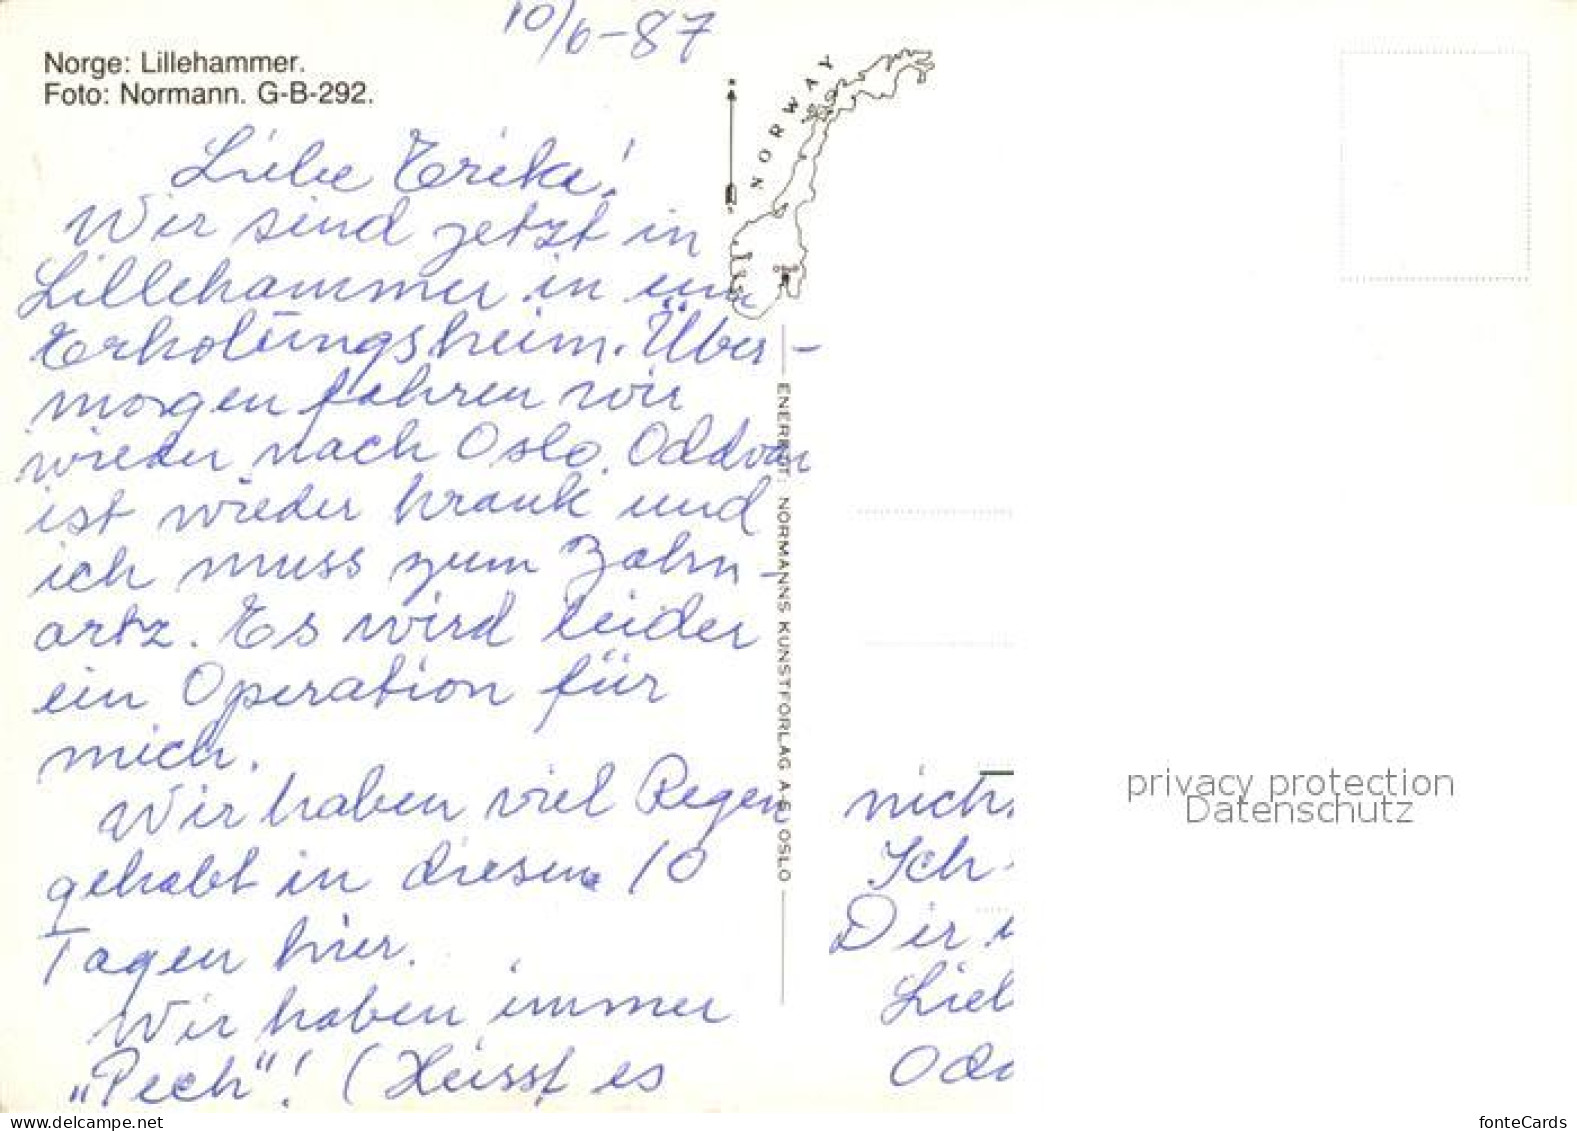 10/6-87
Norge: Lillehammer.
Foto: Normann. G-B-292.
NORWAY
Liebe Erika!
Wir sind jetzt in
Lillehammer in
Erholungsheim. Über-
morgen fahren wir
wieder nach Oslo. Oddvar
ist wieder krank und
ich muss zum Zahn-
artz. Es wird leider
ein Operation für
mich.
Wir haben viel Regen
gehabt in diesen 10
Tagen hier.
Wir haben immer
„Pech“! (Heisst es
ENERETT: NORMANNS KUNSTFORLAG A-S, OSLO
nich
Ich
Dir
Lieb
Odd
privacy protection
Datenschutz
www.delcampe.net
fonteCards